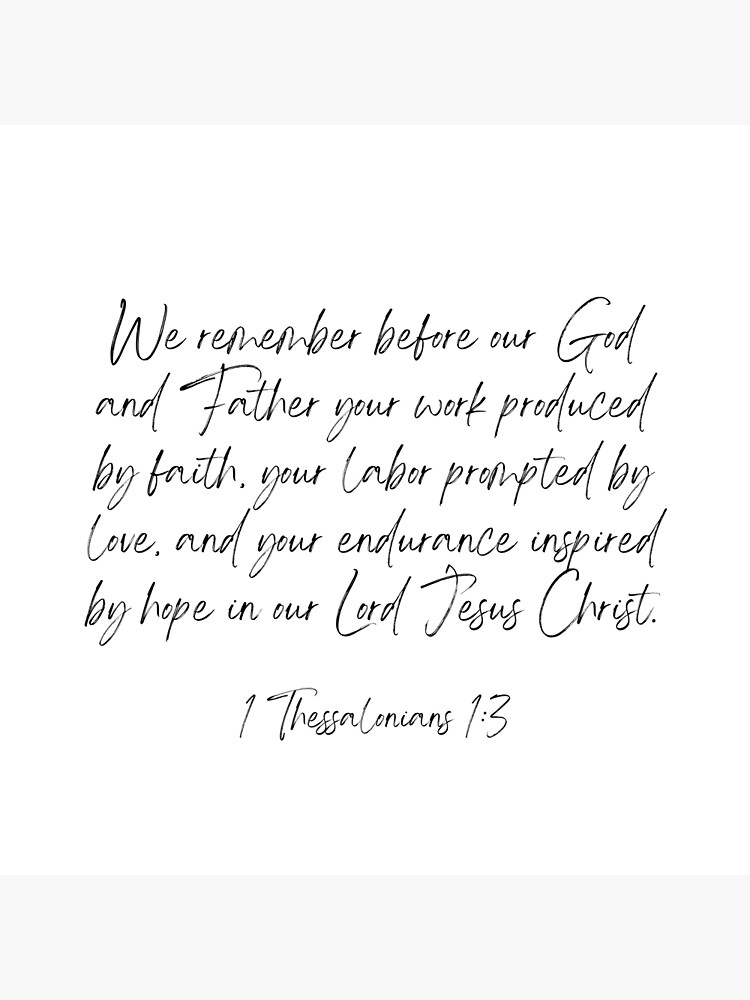 We remember before our God
and Father your work produced
by faith, your labor prompted by
love, and your endurance inspired
by hope in our Lord Jesus Christ.
1 Thessalonians 1:3